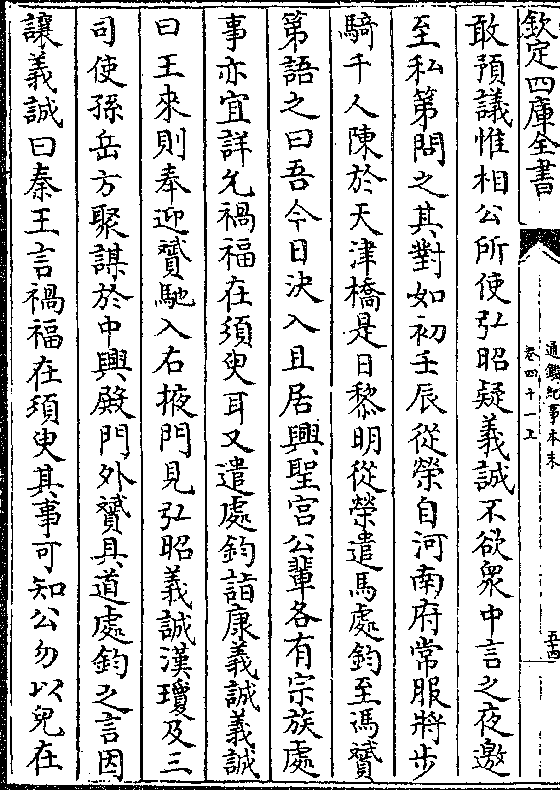 欽定四庫全書
通鑑紀事本末
卷四十一上
五十四
敢預議惟相公所使弘昭疑義誠不欲衆中言之夜邀
至私第問之其對如初壬辰從榮自河南府常服將步
騎千人陳於天津橋是日黎明從榮遣馬處鈞至馮贇
第語之曰吾今日決入且居興聖宫公輩各有宗族處
事亦宜詳允禍福在須臾耳又遣處鈞詣康義誠義誠
曰王來則奉迎贇馳入右掖門見弘昭義誠漢瓊及三
司使孫岳方聚謀於中興殿門外贇具道處鈞之言因
讓義誠曰秦王言禍福在須臾其事可知公勿以兒在